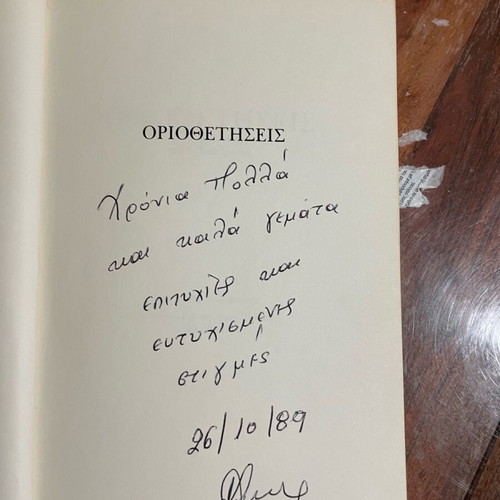 ΟΡΙΟΘΕΤΗΣΕΙΣ
Χρόνια Πολλά
και καλά γεμάτα
επιτυχίες και
ευτυχισμένες
στιγμές
26/10/89